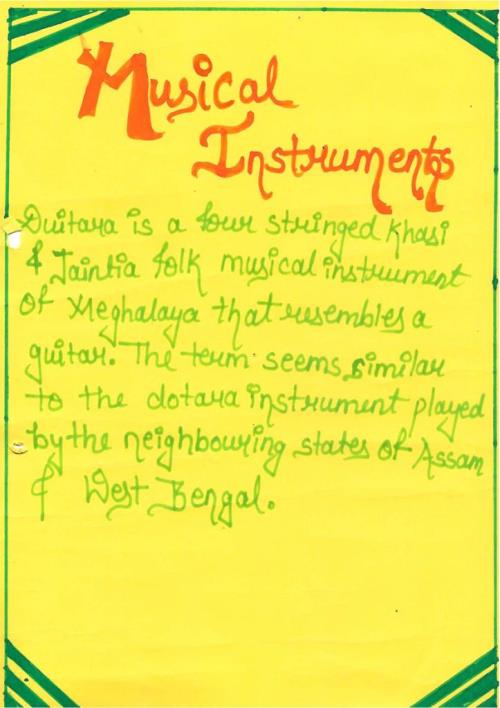 Musical
Instruments
Duitara is a four stringed Khasi
& Jaintia folk musical instrument
of Meghalaya that resembles a
guitar. The term seems similar
to the dotara instrument played
by the neighbouring states of Assam
& West Bengal.